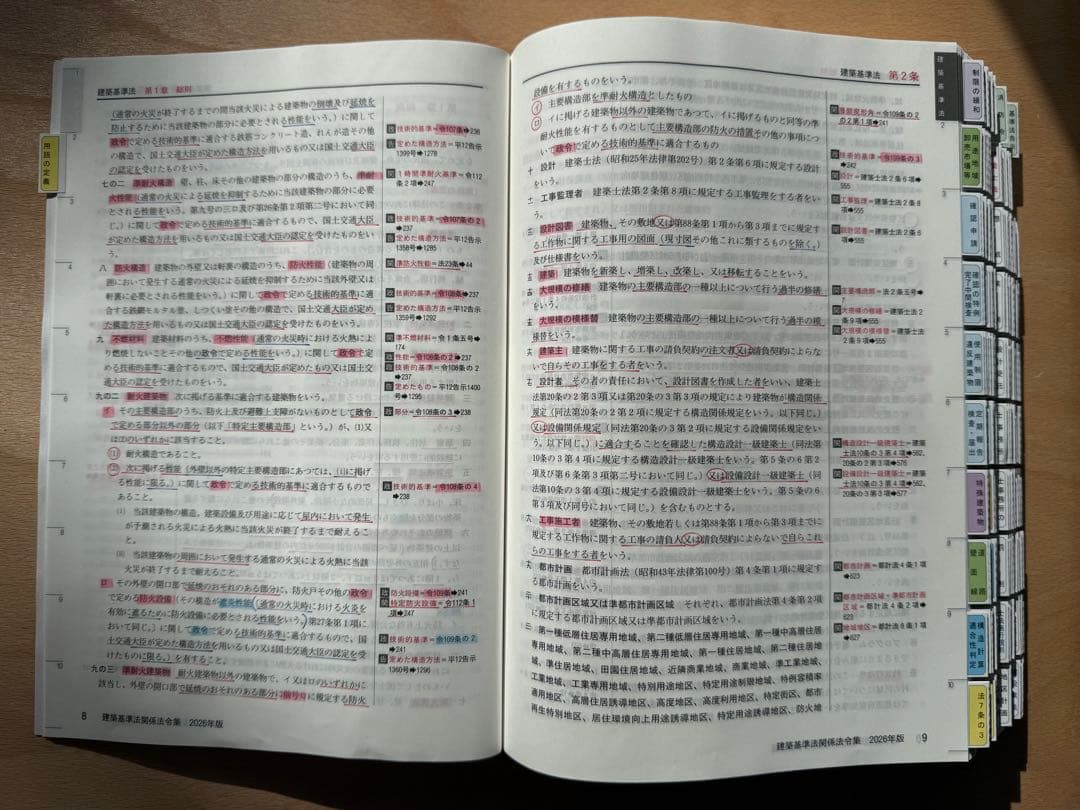 建築基準法 第1章 総則
(通常の火災が終了するまでの間当該火災による建築物の倒壊及び延焼を
防止するために当該建築物の部分に必要とされる性能をいう。)に関して
政令で定める技術的基準に適合する鉄筋コンクリート造、れんが造その他
の構造で、国土交通大臣が定めた構造方法を用いるもの又は国土交通大臣
の認定を受けたものをいう。
七の二 準耐火構造 壁、柱、床その他の建築物の部分の構造のうち、準耐
火性能(通常の火災による延焼を抑制するために当該建築物の部分に必要
とされる性能をいう。第九号の三ロ及び第26条第2項第二号において同
じ。)に関して政令で定める技術的基準に適合するもので、国土交通大臣
が定めた構造方法を用いるもの又は国土交通大臣の認定を受けたものをい
う。
八 防火構造 建築物の外壁又は軒裏の構造のうち、防火性能(建築物の周
囲において発生する通常の火災による延焼を抑制するために当該外壁又は
軒裏に必要とされる性能をいう。)に関して政令で定める技術的基準に適
合する鉄網モルタル塗、しつくい塗その他の構造で、国土交通大臣が定め
た構造方法を用いるもの又は国土交通大臣の認定を受けたものをいう。
九 不燃材料 建築材料のうち、不燃性能(通常の火災時における火熱によ
り燃焼しないことその他の政令で定める性能をいう。)に関して政令で定
める技術的基準に適合するもので、国土交通大臣が定めたもの又は国土交
通大臣の認定を受けたものをいう。
九の二 耐火建築物 次に掲げる基準に適合する建築物をいう。
イ その主要構造部のうち、防火上及び避難上支障がないものとして政令
で定める部分以外の部分(以下「特定主要構造部」という。)が、(1)又
は(2)のいずれかに該当すること。
(1) 耐火構造であること。
(2) 次に掲げる性能(外壁以外の特定主要構造部にあつては、(i)に掲げ
る性能に限る。)に関して政令で定める技術的基準に適合するもので
あること。
(i) 当該建築物の構造、建築設備及び用途に応じて屋内において発生
が予測される火災による火熱に当該火災が終了するまで耐えるこ
と。
(ii) 当該建築物の周囲において発生する通常の火災による火熱に当該
火災が終了するまで耐えること。
ロ その外壁の開口部で延焼のおそれのある部分に、防火戸その他の政令
で定める防火設備(その構造が遮炎性能(通常の火災時における火炎を
有効に遮るために防火設備に必要とされる性能をいう。第27条第1項に
おいて同じ。)に関して政令で定める技術的基準に適合するもので、国
土交通大臣が定めた構造方法を用いるもの又は国土交通大臣の認定を受
けたものに限る。)を有すること。
九の三 準耐火建築物 耐火建築物以外の建築物で、イ又はロのいずれかに
該当し、外壁の開口部で延焼のおそれのある部分に前号ロに規定する防火
技術的基準=令107条➡236
定めた構造方法=平12告示
1399号➡1278
1時間準耐火構造=令112
条2項➡247
技術的基準=令107条の2
➡237
定めた構造方法=平12告示
1358号➡1285
準防火性能=法23条➡44
技術的基準=令108条➡237
定めた構造方法=平12告示
1359号➡1292
準不燃材料=令1条五号➡
174
性能=令108条の2➡237
技術的基準=令108条の2
➡237
定めたもの=平12告示1400
号➡1295
部分=令108条の3➡238
技術的基準=令108条の4
➡238
防火設備=令109条➡241
特定防火設備=令112条1項
➡247
技術的基準=令109条の2
➡241
定めた構造方法=平12告示
1360号➡1296
用語の定義
8 建築基準法関係法令集 2026年版
建築基準法 第2条
設備を有するものをいう。
イ 主要構造部を準耐火構造としたもの
ロ イに掲げる建築物以外の建築物であつて、イに掲げるものと同等の準
耐火性能を有するものとして主要構造部の防火の措置その他の事項につ
いて政令で定める技術的基準に適合するもの
十 設計 建築士法(昭和25年法律第202号)第2条第6項に規定する設計
をいう。
十一 工事監理者 建築士法第2条第8項に規定する工事監理をする者をい
う。
十二 設計図書 建築物、その敷地又は第88条第1項から第3項までに規定す
る工作物に関する工事用の図面(現寸図その他これに類するものを除く。)
及び仕様書をいう。
十三 建築 建築物を新築し、増築し、改築し、又は移転することをいう。
十四 大規模の修繕 建築物の主要構造部の一種以上について行う過半の修繕
をいう。
十五 大規模の模様替 建築物の主要構造部の一種以上について行う過半の模
様替をいう。
十六 建築主 建築物に関する工事の請負契約の注文者又は請負契約によらな
いで自らその工事をする者をいう。
十七 設計者 その者の責任において、設計図書を作成した者をいい、建築士
法第20条の2第3項又は第20条の3第3項の規定により建築物が構造関係
規定(同法第20条の2第2項に規定する構造関係規定をいう。以下同じ。)
又は設備関係規定(同法第20条の3第2項に規定する設備関係規定をい
う。以下同じ。)に適合することを確認した構造設計一級建築士(同法第
10条の3第4項に規定する構造設計一級建築士をいう。第5条の6第2
項及び第6条第3項第二号において同じ。)又は設備設計一級建築士(同
法第10条の3第4項に規定する設備設計一級建築士をいう。第5条の6第
3項及び同号において同じ。)を含むものとする。
十八 工事施工者 建築物、その敷地若しくは第88条第1項から第3項までに
規定する工作物に関する工事の請負人又は請負契約によらないで自らこれ
らの工事をする者をいう。
十九 都市計画 都市計画法(昭和43年法律第100号)第4条第1項に規定す
る都市計画をいう。
二十 都市計画区域又は準都市計画区域 それぞれ、都市計画法第4条第2項
に規定する都市計画区域又は準都市計画区域をいう。
二十一 第一種低層住居専用地域、第二種低層住居専用地域、第一種中高層住居
専用地域、第二種中高層住居専用地域、第一種住居地域、第二種住居地
域、準住居地域、田園住居地域、近隣商業地域、商業地域、準工業地域、
工業地域、工業専用地域、特別用途地区、特定用途制限地域、特例容積率
適用地区、高層住居誘導地区、高度地区、高度利用地区、特定街区、都市
再生特別地区、居住環境向上用途誘導地区、特定用途誘導地区、防火地
技術的基準=令109条の3
➡242
設計=建築士法2条6項➡
555
工事監理=建築士法2条8
項➡555
設計図書=建築士法2条6
項➡555
主要構造部=法2条五号➡
7
大規模の修繕=建築士法2
条9項➡555
大規模の模様替=建築士法
2条9項➡555
構造設計一級建築士=建築
士法10条の3第4項➡562、
20条の2第3項➡576
設備設計一級建築士=建築
士法10条の3第4項➡562、
20条の3第3項➡577
都市計画=都計法4条1項
➡623
都市計画区域・準都市計画
区域=都計法4条2項➡
623
地域地区=都計法8条1項
➡627
建築基準法関係法令集 2026年版 9
建築基準法
制限の緩和
用途地域
卸売市場等
確認申請
確認の特例
完了中間検査
使用制限
違反建築物
定期報告
検査・届出
特殊建築物
道路
壁面線
構造計算
適合性判定
法7条の3